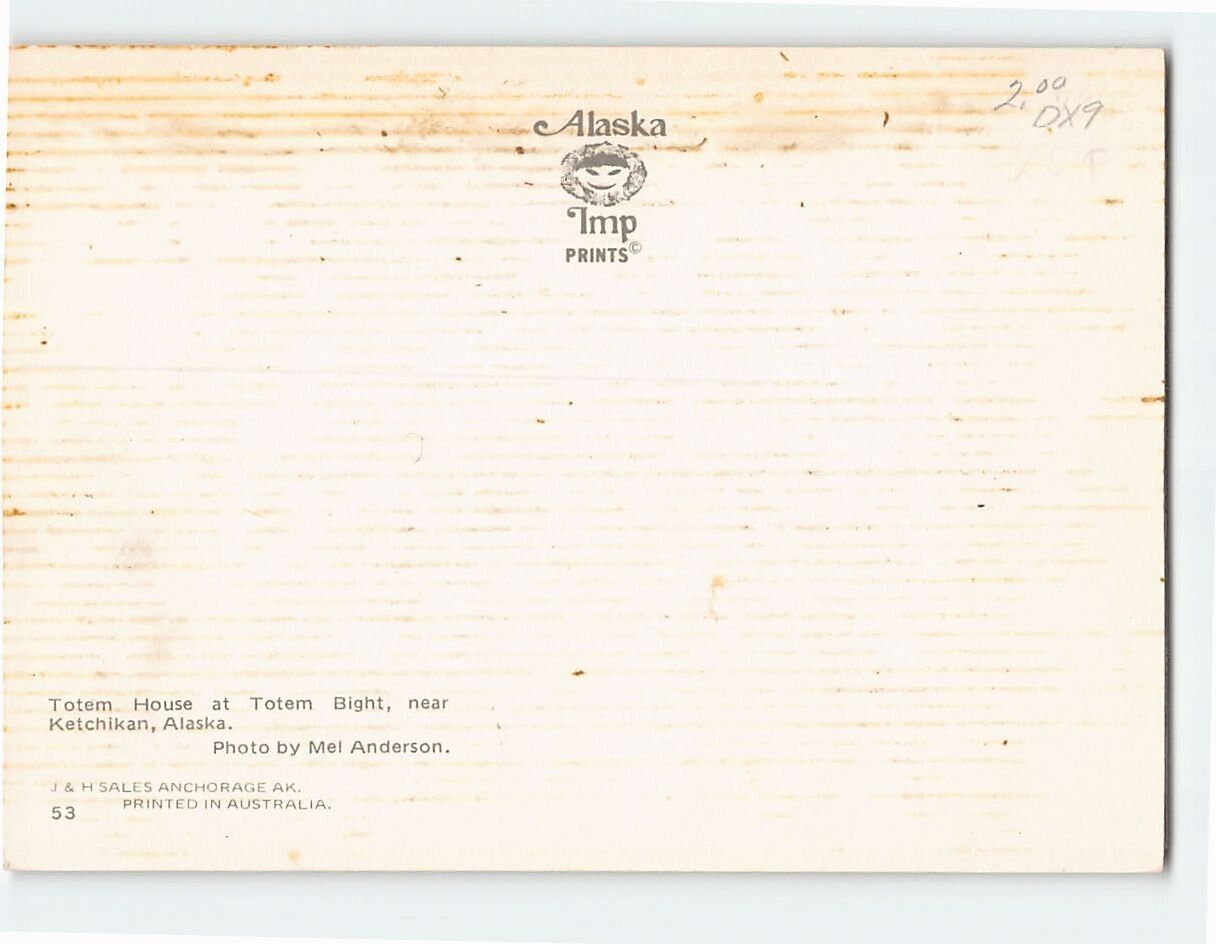 2.00
DX9
Alaska
Imp
PRINTS©
Totem House at Totem Bight, near
Ketchikan, Alaska.
Photo by Mel Anderson.
J & H SALES ANCHORAGE AK.
PRINTED IN AUSTRALIA.
53